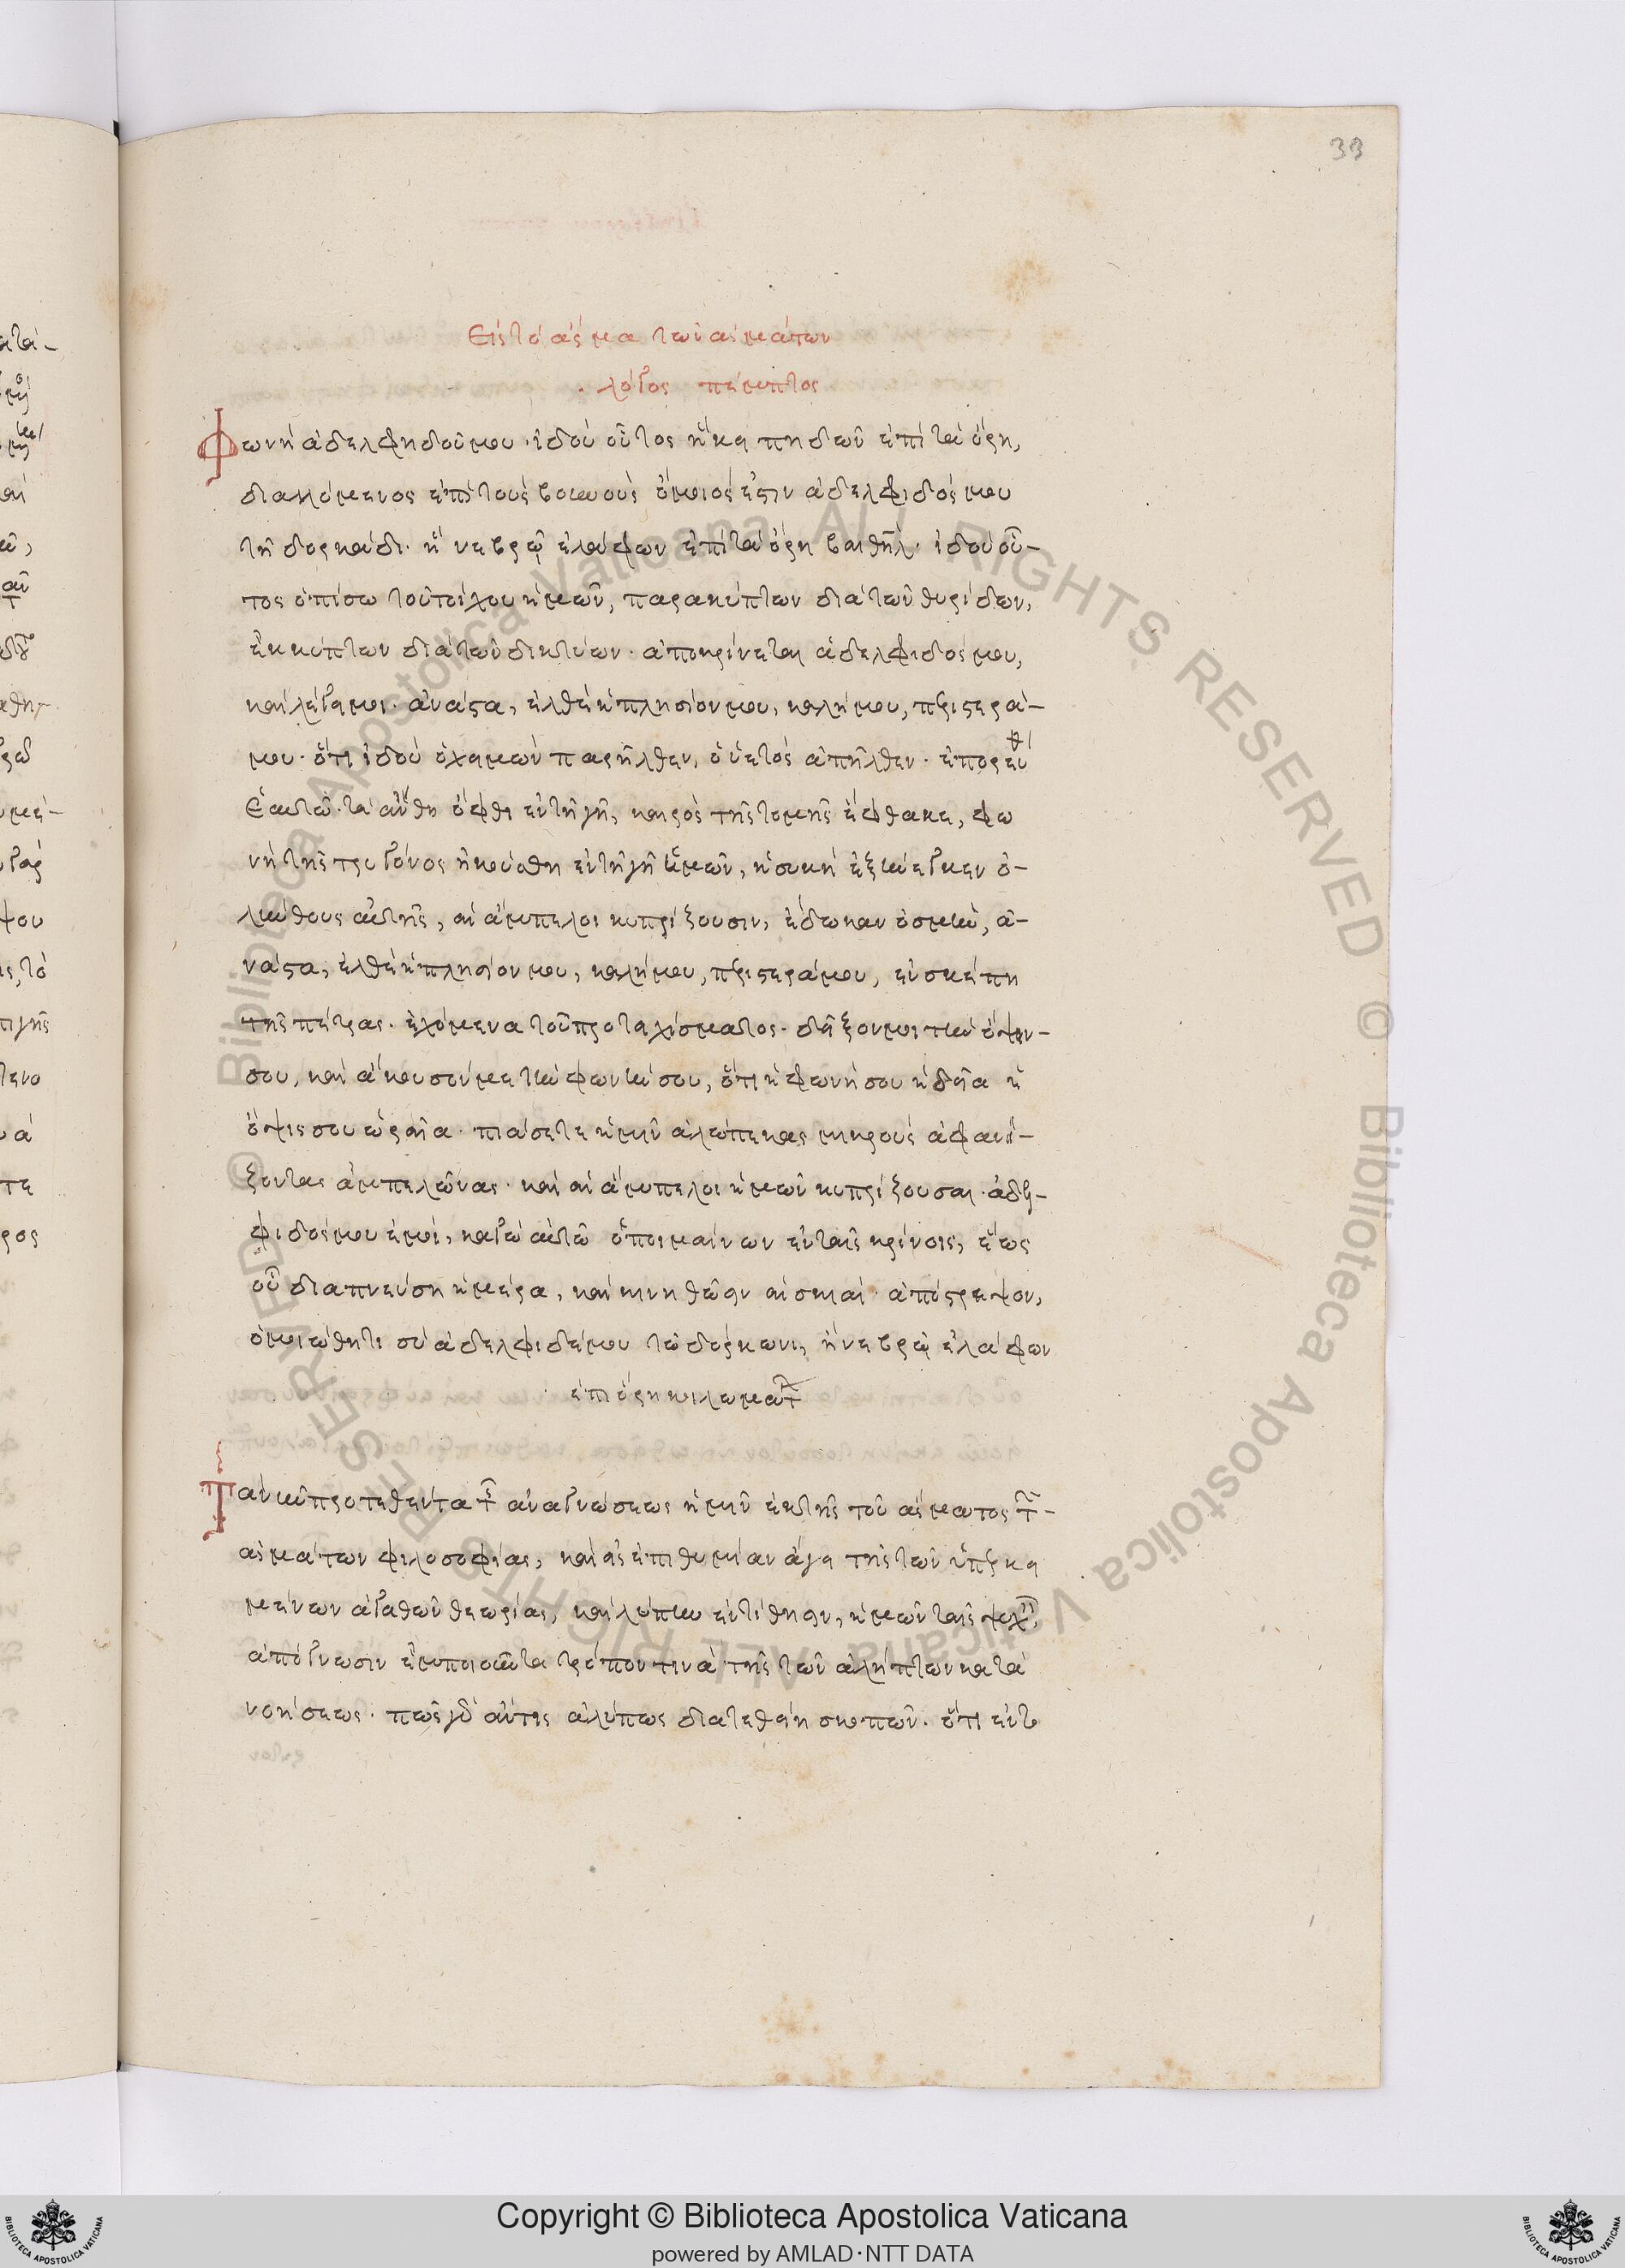 33
Εἰς τὸ ἆσμα τῶν ἀσμάτων
λόγος πέμπτος
Φωνὴ ἀδελφηδοῦ μου· ἰδοὺ οὗτος ἥκει πηδῶν ἐπὶ τὰ ὄρη,
διαλλόμενος ἐπὶ τοὺς βουνοὺς ὅμοιός ἐστιν ἀδελφιδός μου
τῇ δορκάδι· ἢ νεβρῷ ἐλάφων ἐπὶ τὰ ὄρη βαιθήλ· ἰδοὺ οὗ-
τος ὀπίσω τοῦ τοίχου ἡμῶν, παρακύπτων διὰ τῶν θυρίδων,
ἐκκύπτων διὰ τῶν δικτύων· ἀποκρίνεται ἀδελφιδός μου,
καὶ λέγει μοι· ἀνάστα, ἐλθὲ ἡ πλησίον μου, καλή μου, περιστερά-
μου· ὅτι ἰδοὺ ὁ χειμὼν παρῆλθεν, ὁ ὑετὸς ἀπῆλθεν· ἐπορεύθη
ἑαυτῷ· τὰ ἄνθη ὤφθη ἐν τῇ γῇ, καιρὸς τῆς τομῆς ἔφθακε, φω
νὴ τῆς τρυγόνος ἠκούσθη ἐν τῇ γῇ ἡμῶν, ἡ συκῆ ἐξήνεγκεν ὀ-
λύνθους αὐτῆς, αἱ ἄμπελοι κυπρίζουσιν, ἔδωκαν ὀσμήν, ἀ-
νάστα, ἐλθὲ ἡ πλησίον μου, καλή μου, περιστερά μου, ἐν σκέπῃ
τῆς πέτρας· ἐχόμενα τοῦ προτειχίσματος· δεῖξόν μοι τὴν ὄψιν-
σου, καὶ ἀκουσόν με τὴν φωνήν σου, ὅτι ἡ φωνή σου ἡδεῖα ἡ
ὄψις σου ὡραῖα· πιάσετε ἡμῖν ἀλώπεκας μικροὺς ἀφανί-
ζοντας ἀμπελῶνας· καὶ αἱ ἄμπελοι ἡμῶν κυπρίζουσαι· ἀδελ-
φιδός μου ἐμοί, κἀγὼ αὐτῷ ὁ ποιμαίνων ἐν τοῖς κρίνοις, ἕως
οὗ διαπνεύσῃ ἡμέρα, καὶ κινηθῶσιν αἱ σκιαί· ἀπόστρεψον,
ὁμοιώθητι σὺ ἀδελφιδέ μου τῷ δόρκωνι, ἢ νεβρῷ ἐλάφων
ἐπὶ ὄρη κοιλωμάτων
Τὰ νῦν προτεθέντα τῆς ἀναγνώσεως ἡμῖν ἐκ τῆς τοῦ ἄσματος τῶν-
ἀσμάτων φιλοσοφίας, καὶ εἰς ἐπιθυμίαν ἄγει τῆς τῶν ὑπερκει
μένων ἀγαθῶν θεωρίας, καὶ λύπην ἐντίθησιν, ἡμῶν ταῖς ψυχαῖς,
ἀπόγνωσιν ἐμποιοῦντα τρόπον τινὰ τῆς τῶν ἀλήπτων κατα
νοήσεως· πῶς γὰρ ἄν τις ἀλύπως διατεθείη σκοπῶν· ὅτι ἐν το
Copyright © Biblioteca Apostolica Vaticana
powered by AMLAD·NTT DATA